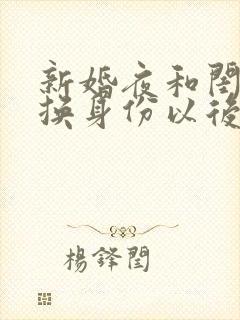 新婚夜和閨
換身份以後
楊鋒閏